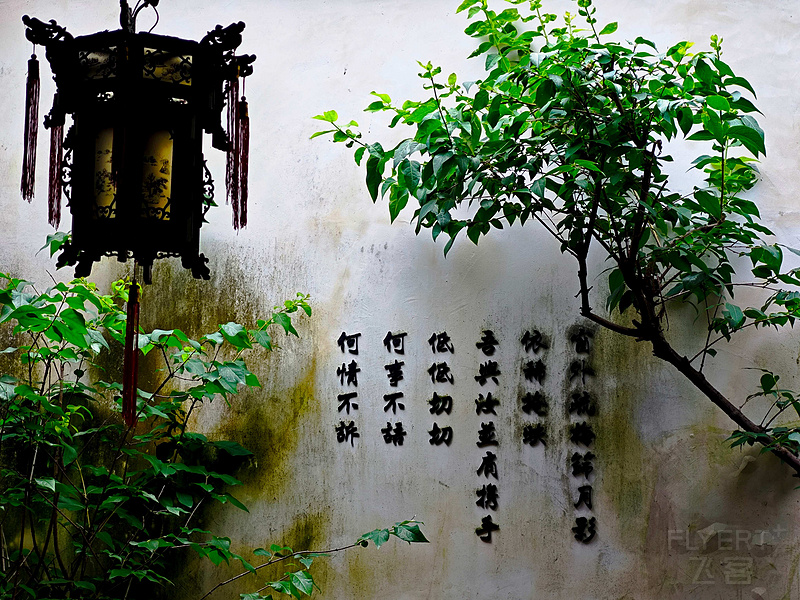 窗外疏梅篩月影
依稀掩映
吾與汝並肩携手
低低切切
何事不語
何情不訴
FLYERT
飞客